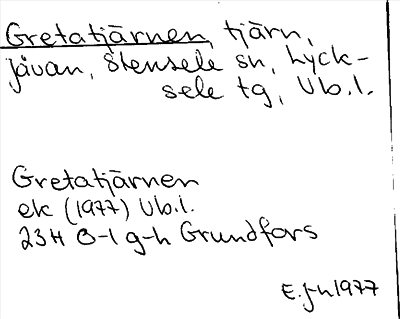 Gretatjärnen, tjärn,
jåvan, Stensele sn, Lyck-
sele tg, Vb.l.
Gretatjärnen
ek (1977) Vb.l.
23H 0-1 g-h Grundfors
E.J-n 1977